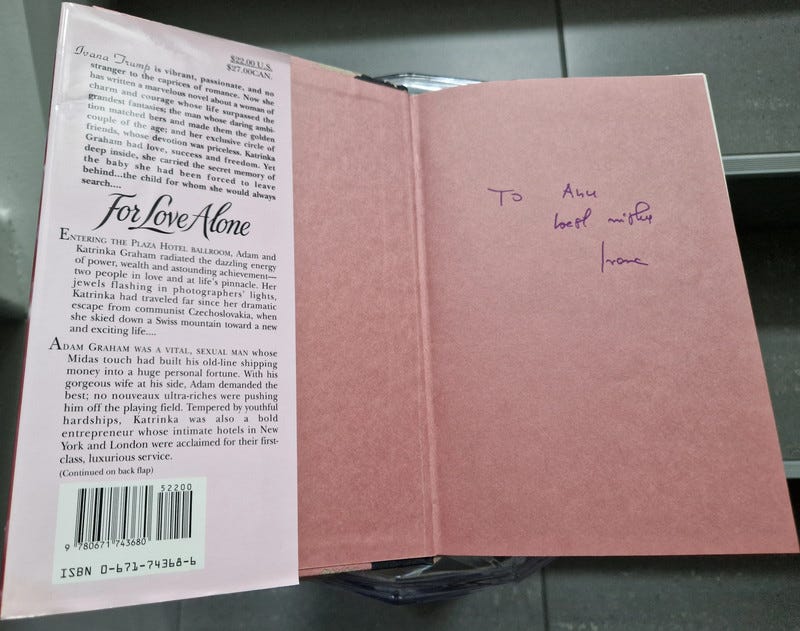 Ivana Trump is vibrant, passionate, and no
$22.00 U.S.
$27.00CAN.
stranger to the caprices of romance. Now she
has written a marvelous novel about a woman of
charm and courage whose life surpassed the
grandest fantasies; the man whose daring ambi-
tion matched hers and made them the golden
couple of the age; and her exclusive circle of
friends, whose devotion was priceless. Katrinka
Graham had love, success and freedom. Yet
deep inside, she carried the secret memory of
the baby she had been forced to leave
behind...the child for whom she would always
search....
For Love Alone
ENTERING THE PLAZA HOTEL BALLROOM, Adam and
Katrinka Graham radiated the dazzling energy
of power, wealth and astounding achievement—
two people in love and at life's pinnacle. Her
jewels flashing in photographers' lights,
Katrinka had traveled far since her dramatic
escape from communist Czechoslovakia, when
she skied down a Swiss mountain toward a new
and exciting life....
ADAM GRAHAM WAS A VITAL, SEXUAL MAN whose
Midas touch had built his old-line shipping
money into a huge personal fortune. With his
gorgeous wife at his side, Adam demanded the
best; no nouveaux ultra-riches were pushing
him off the playing field. Tempered by youthful
hardships, Katrinka was also a bold
entrepreneur whose intimate hotels in New
York and London were acclaimed for their first-
class, luxurious service.
(Continued on back flap)
52200
9 780671 743680
ISBN 0-671-74368-6
To Ann
best wishes
Ivana